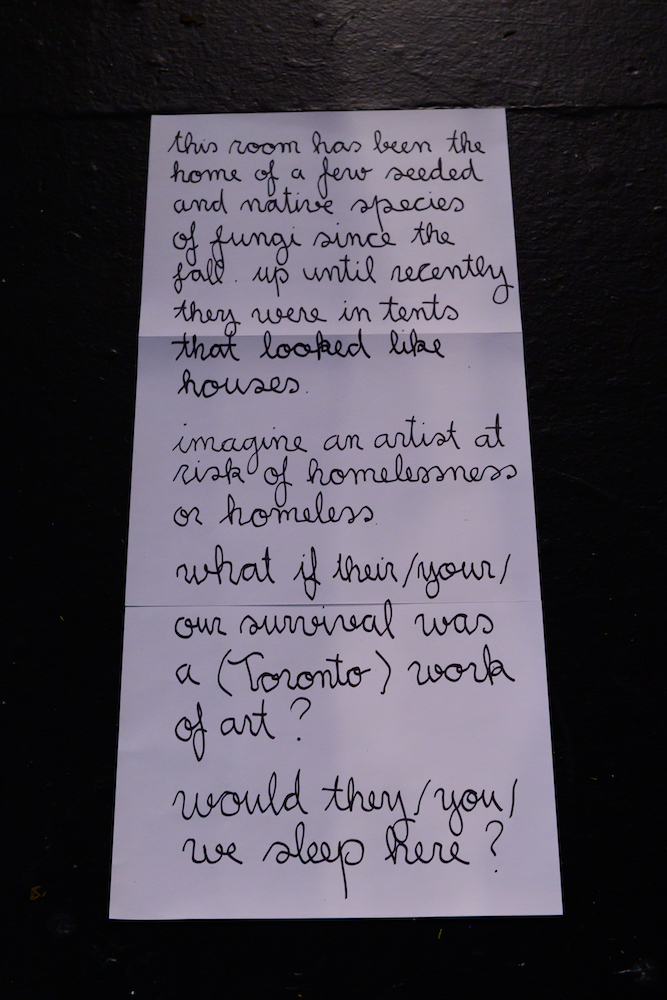 this room has been the
home of a few seeded
and native species
of fungi since the
fall. up until recently
they were in tents
that looked like
houses.
imagine an artist at
risk of homelessness
or homeless.
what if their/your/
our survival was
a (Toronto) work
of art?
would they/you/
we sleep here?